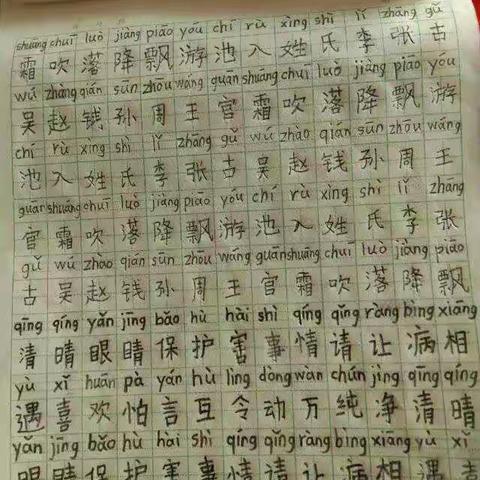 shuāng chuī luò jiàng piāo yóu chí rù xìng shì lǐ zhāng gǔ
霜吹落降飘游池入姓氏李张古
wú zhào qián sūn zhōu wáng guān shuāng chuī luò jiàng piāo yóu
吴赵钱孙周王官霜吹落降飘游
chí rù xìng shì lǐ zhāng gǔ wú zhào qián sūn zhōu wáng
池入姓氏李张古吴赵钱孙周王
guān shuāng chuī luò jiàng piāo yóu chí rù xìng shì lǐ zhāng
官霜吹落降飘游池入姓氏李张
gǔ wú zhào qián sūn zhōu wáng guān shuāng chuī luò jiàng piāo
古吴赵钱孙周王官霜吹落降飘
qīng qíng yǎn jīng bǎo hù hài shì qíng qǐng ràng bìng xiāng
清晴眼睛保护害事情请让病相
yù xǐ huān pà yán hù lìng dòng wàn chún jìng qīng qíng
遇喜欢怕言互令动万纯净清晴
yǎn jīng bǎo hù hài shì qíng qǐng ràng bìng xiāng yù xǐ
眼睛保护害事情请让病相遇喜